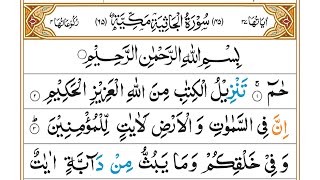 اٰیَاتُهَا ٣٧ (٤٥) سُوْرَةُ الْجَاثِيَةِ مَكِّيَّةٌ (٦٥) رُكُوْعَاتُهَا ٤
بِسْمِ اللهِ الرَّحْمٰنِ الرَّحِيْمِ
حٰمٓ ١ تَنْزِيْلُ الْكِتٰبِ مِنَ اللهِ الْعَزِيْزِ الْحَكِيْمِ ٢
اِنَّ فِى السَّمٰوٰتِ وَ الْاَرْضِ لَاٰيٰتٍ لِّلْمُؤْمِنِيْنَ ٣
وَ فِىْ خَلْقِكُمْ وَ مَا يَبُثُّ مِنْ دَآبَّةٍ اٰيٰتٌ